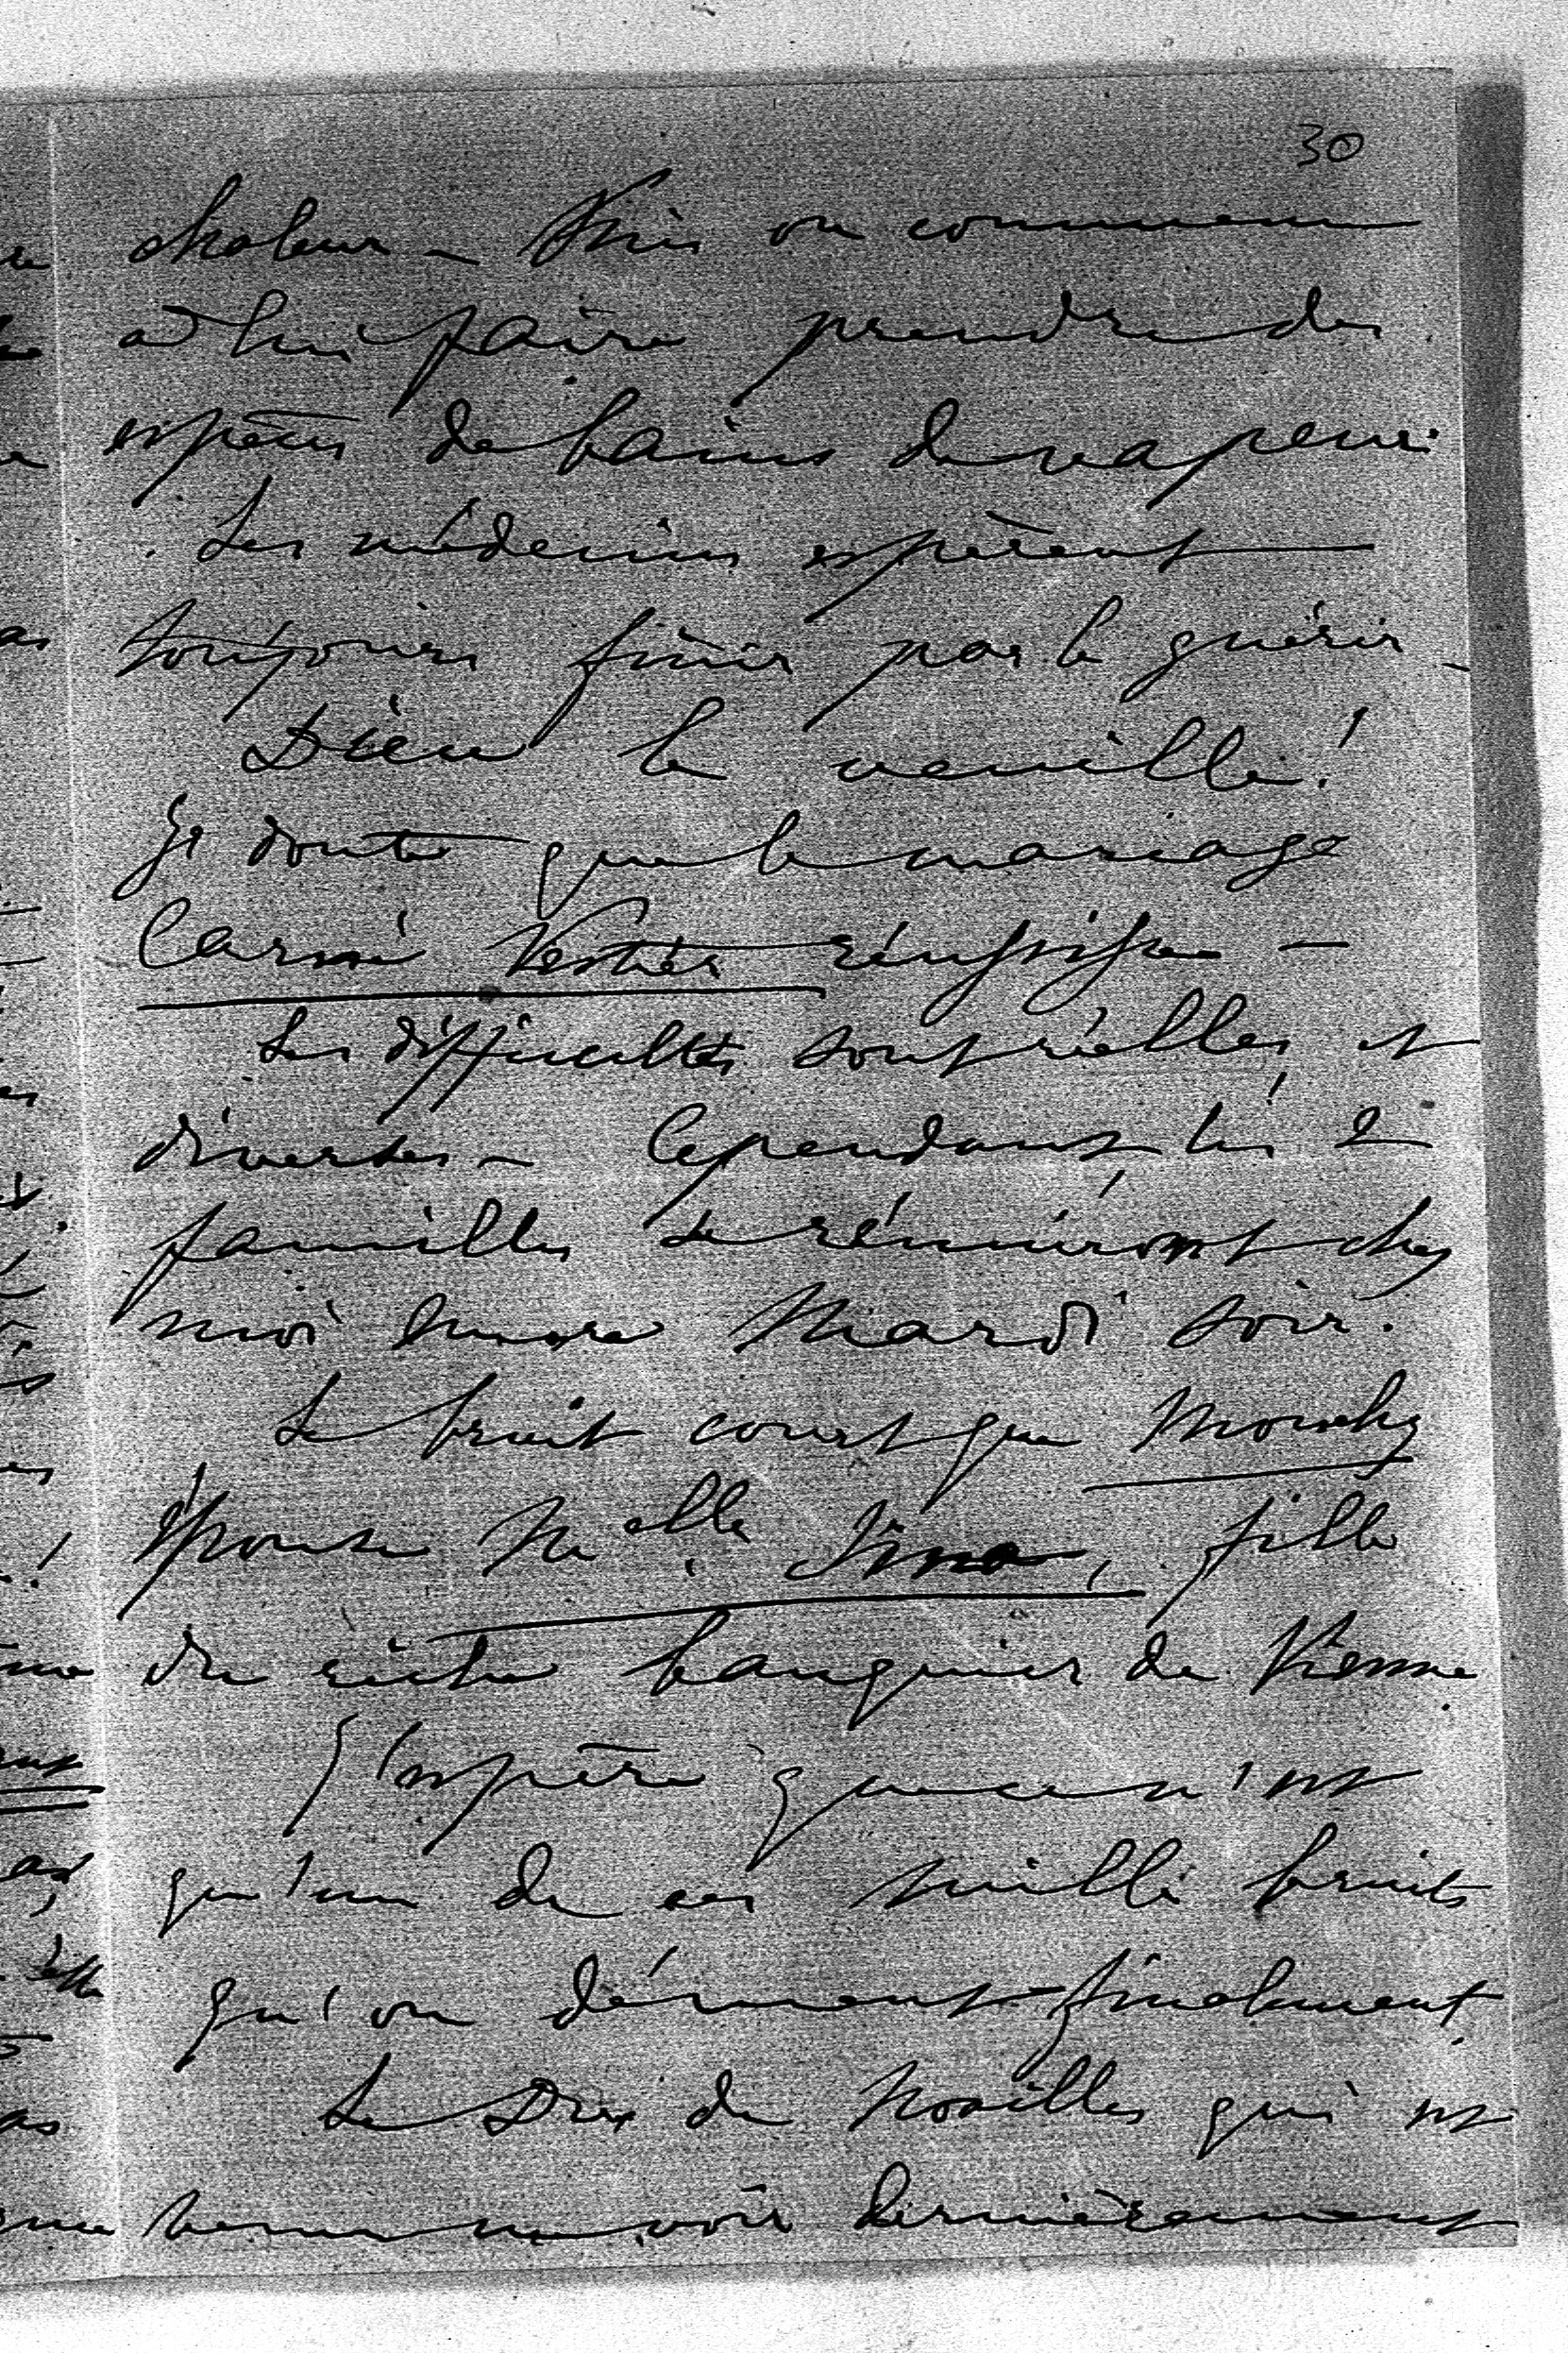 30
chaleur – Puis on commence
à lui faire prendre des
espèces de bains de vapeur
Les médecins espèrent
toujours finir par le guérir –
Dieu le veuille !
Je doute que le mariage
Carini réussisse –
Les difficultés sont réelles et
diverses – Cependant, les 2
familles se réuniront chez
moi Mardi soir.
Le bruit court que Mouchy
épouse Melle Sina, fille
du riche banquier de Vienne.
J'espère que ce n'est
qu'un de ces mille bruits
qu'on dément finalement.
Le Duc de Noailles qui est
venu me voir dernièrement